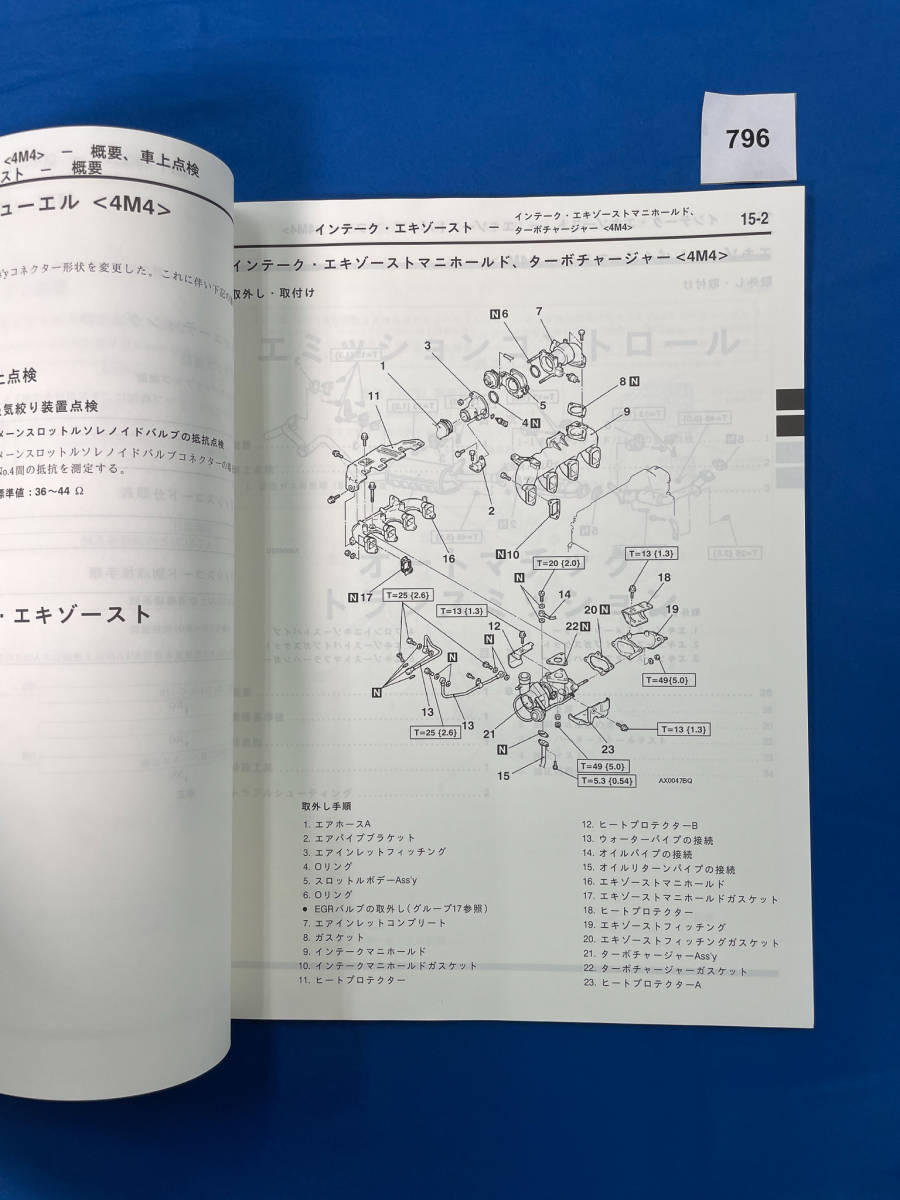 796
<4M4> － 概要、車上点検
スト － 概要
ューエル <4M4>
コネクター形状を変更した。これに伴い下記の
上点検
気絞り装置点検
ターンスロットルソレノイドバルブの抵抗点検
ターンスロットルソレノイドバルブコネクターの
No.4間の抵抗を測定する。
標準値：36～44 Ω
・エキゾースト
インテーク・エキゾースト －
インテーク・エキゾーストマニホールド、
ターボチャージャー <4M4>
15-2
インテーク・エキゾーストマニホールド、ターボチャージャー <4M4>
取外し・取付け
N6
7
3
1
11
8 N
5
4 N
9
2
16
N10
N17
T=20 {2.0}
T=13 {1.3}
N
14
18
T=25 {2.6}
T=13 {1.3}
20 N
19
12
22 N
N
N
T=49 {5.0}
N
13
13
21
T=25 {2.6}
T=13 {1.3}
23
N
T=49 {5.0}
15
T=5.3 {0.54}
AX0047BQ
取外し手順
1. エアホースA
2. エアパイプブラケット
3. エアインレットフィッチング
4. Oリング
5. スロットルボデーAss'y
6. Oリング
● EGRバルブの取外し（グループ17参照）
7. エアインレットコンプリート
8. ガスケット
9. インテークマニホールド
10. インテークマニホールドガスケット
11. ヒートプロテクター
12. ヒートプロテクターB
13. ウォーターパイプの接続
14. オイルパイプの接続
15. オイルリターンパイプの接続
16. エキゾーストマニホールド
17. エキゾーストマニホールドガスケット
18. ヒートプロテクター
19. エキゾーストフィッチング
20. エキゾーストフィッチングガスケット
21. ターボチャージャーAss'y
22. ターボチャージャーガスケット
23. ヒートプロテクターA